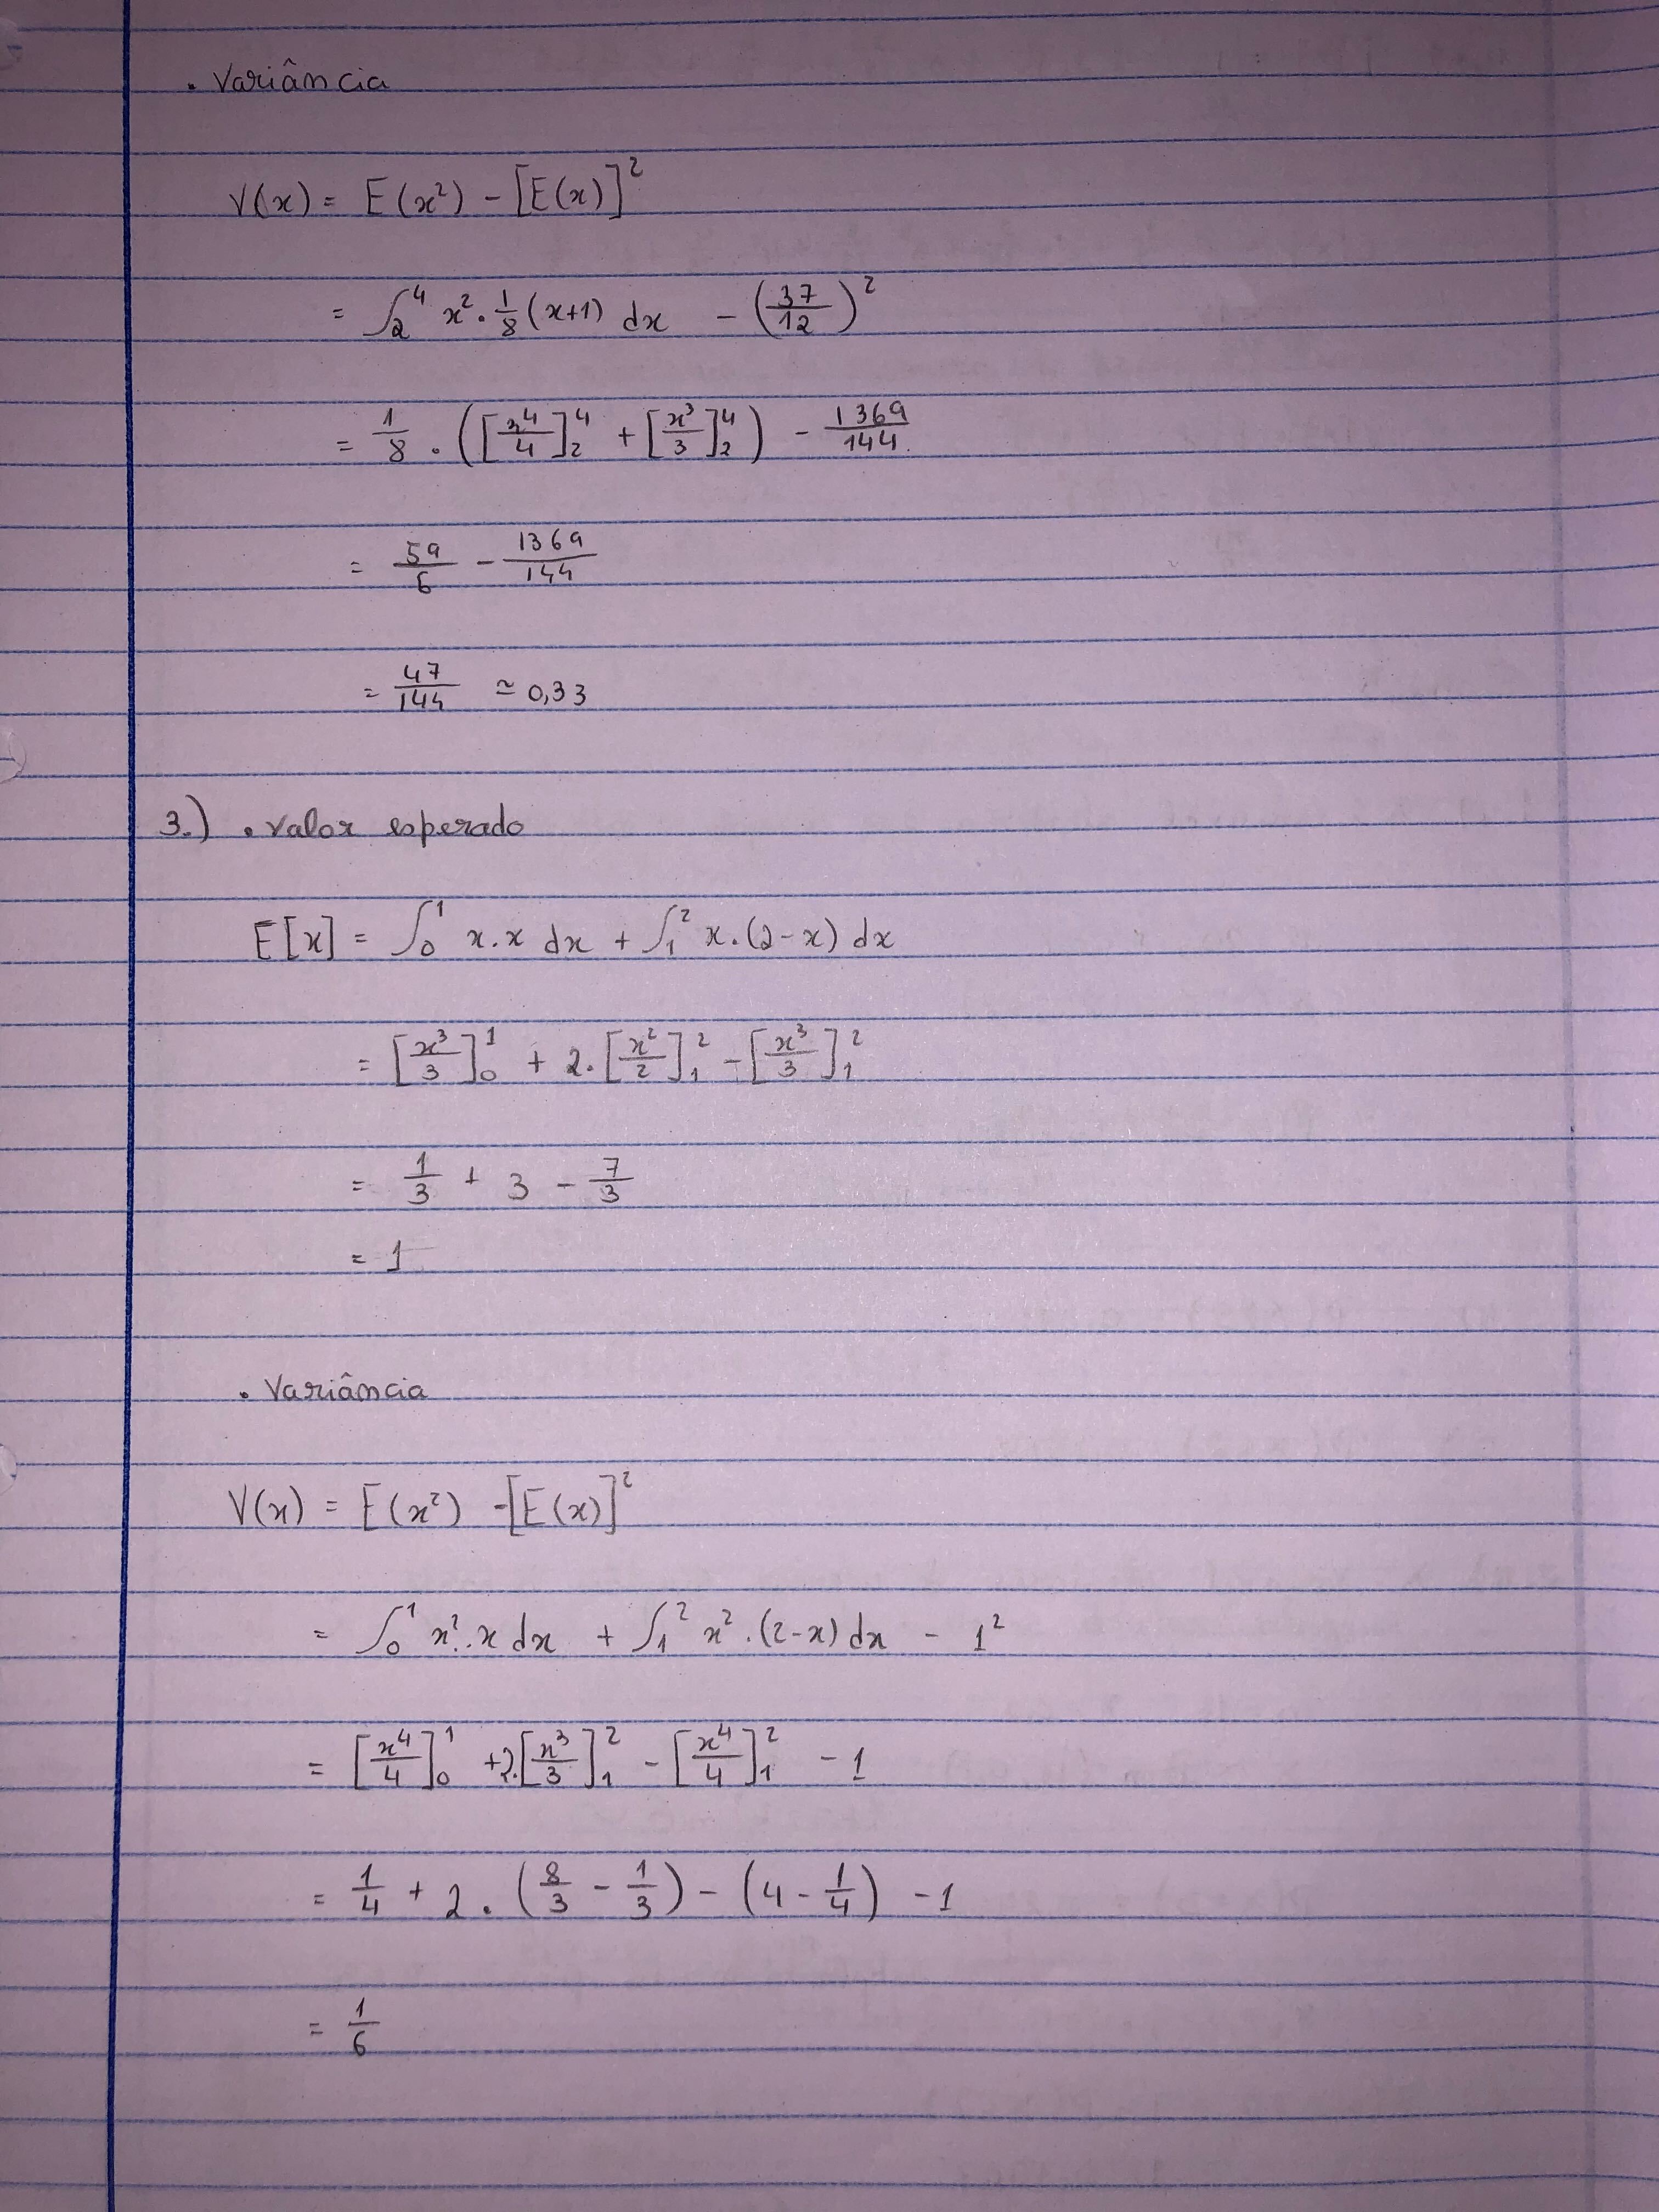 . Variância
V(x) = E(x²) - [E(x)]²
= ∫₂⁴ x² · 1/8 (x+1) dx - (37/12)²
= 1/8 · ([x⁴/4]₂⁴ + [x³/3]₂⁴) - 1369/144
= 59/6 - 1369/144
= 47/144 ≃ 0,33
3.) . Valor esperado
E[x] = ∫₀¹ x.x dx + ∫₁² x.(2-x) dx
= [x³/3]₀¹ + 2.[x²/2]₁² - [x³/3]₁²
= 1/3 + 3 - 7/3
= 1
. Variância
V(x) = E(x²) - [E(x)]²
= ∫₀¹ x².x dx + ∫₁² x².(2-x) dx - 1²
= [x⁴/4]₀¹ +2.[x³/3]₁² - [x⁴/4]₁² - 1
= 1/4 + 2 . (8/3 - 1/3) - (4 - 1/4) - 1
= 1/6